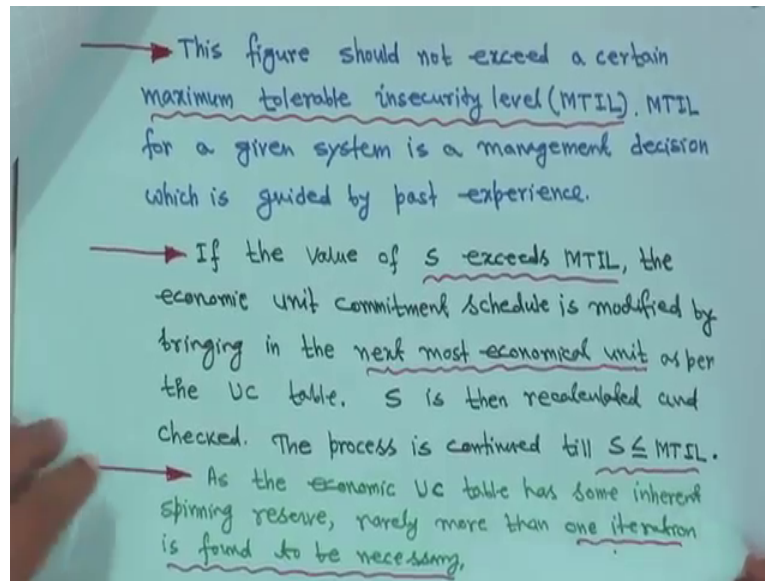 This figure should not exceed a certain
maximum tolerable insecurity level (MTIL). MTIL
for a given system is a management decision
which is guided by past experience.
If the value of S exceeds MTIL, the
economic unit commitment schedule is modified by
bringing in the next most economical unit as per
the UC table. S is then recalculated and
checked. The process is continued till S ≤ MTIL.
As the economic UC table has some inherent
spinning reserve, rarely more than one iteration
is found to be necessary.